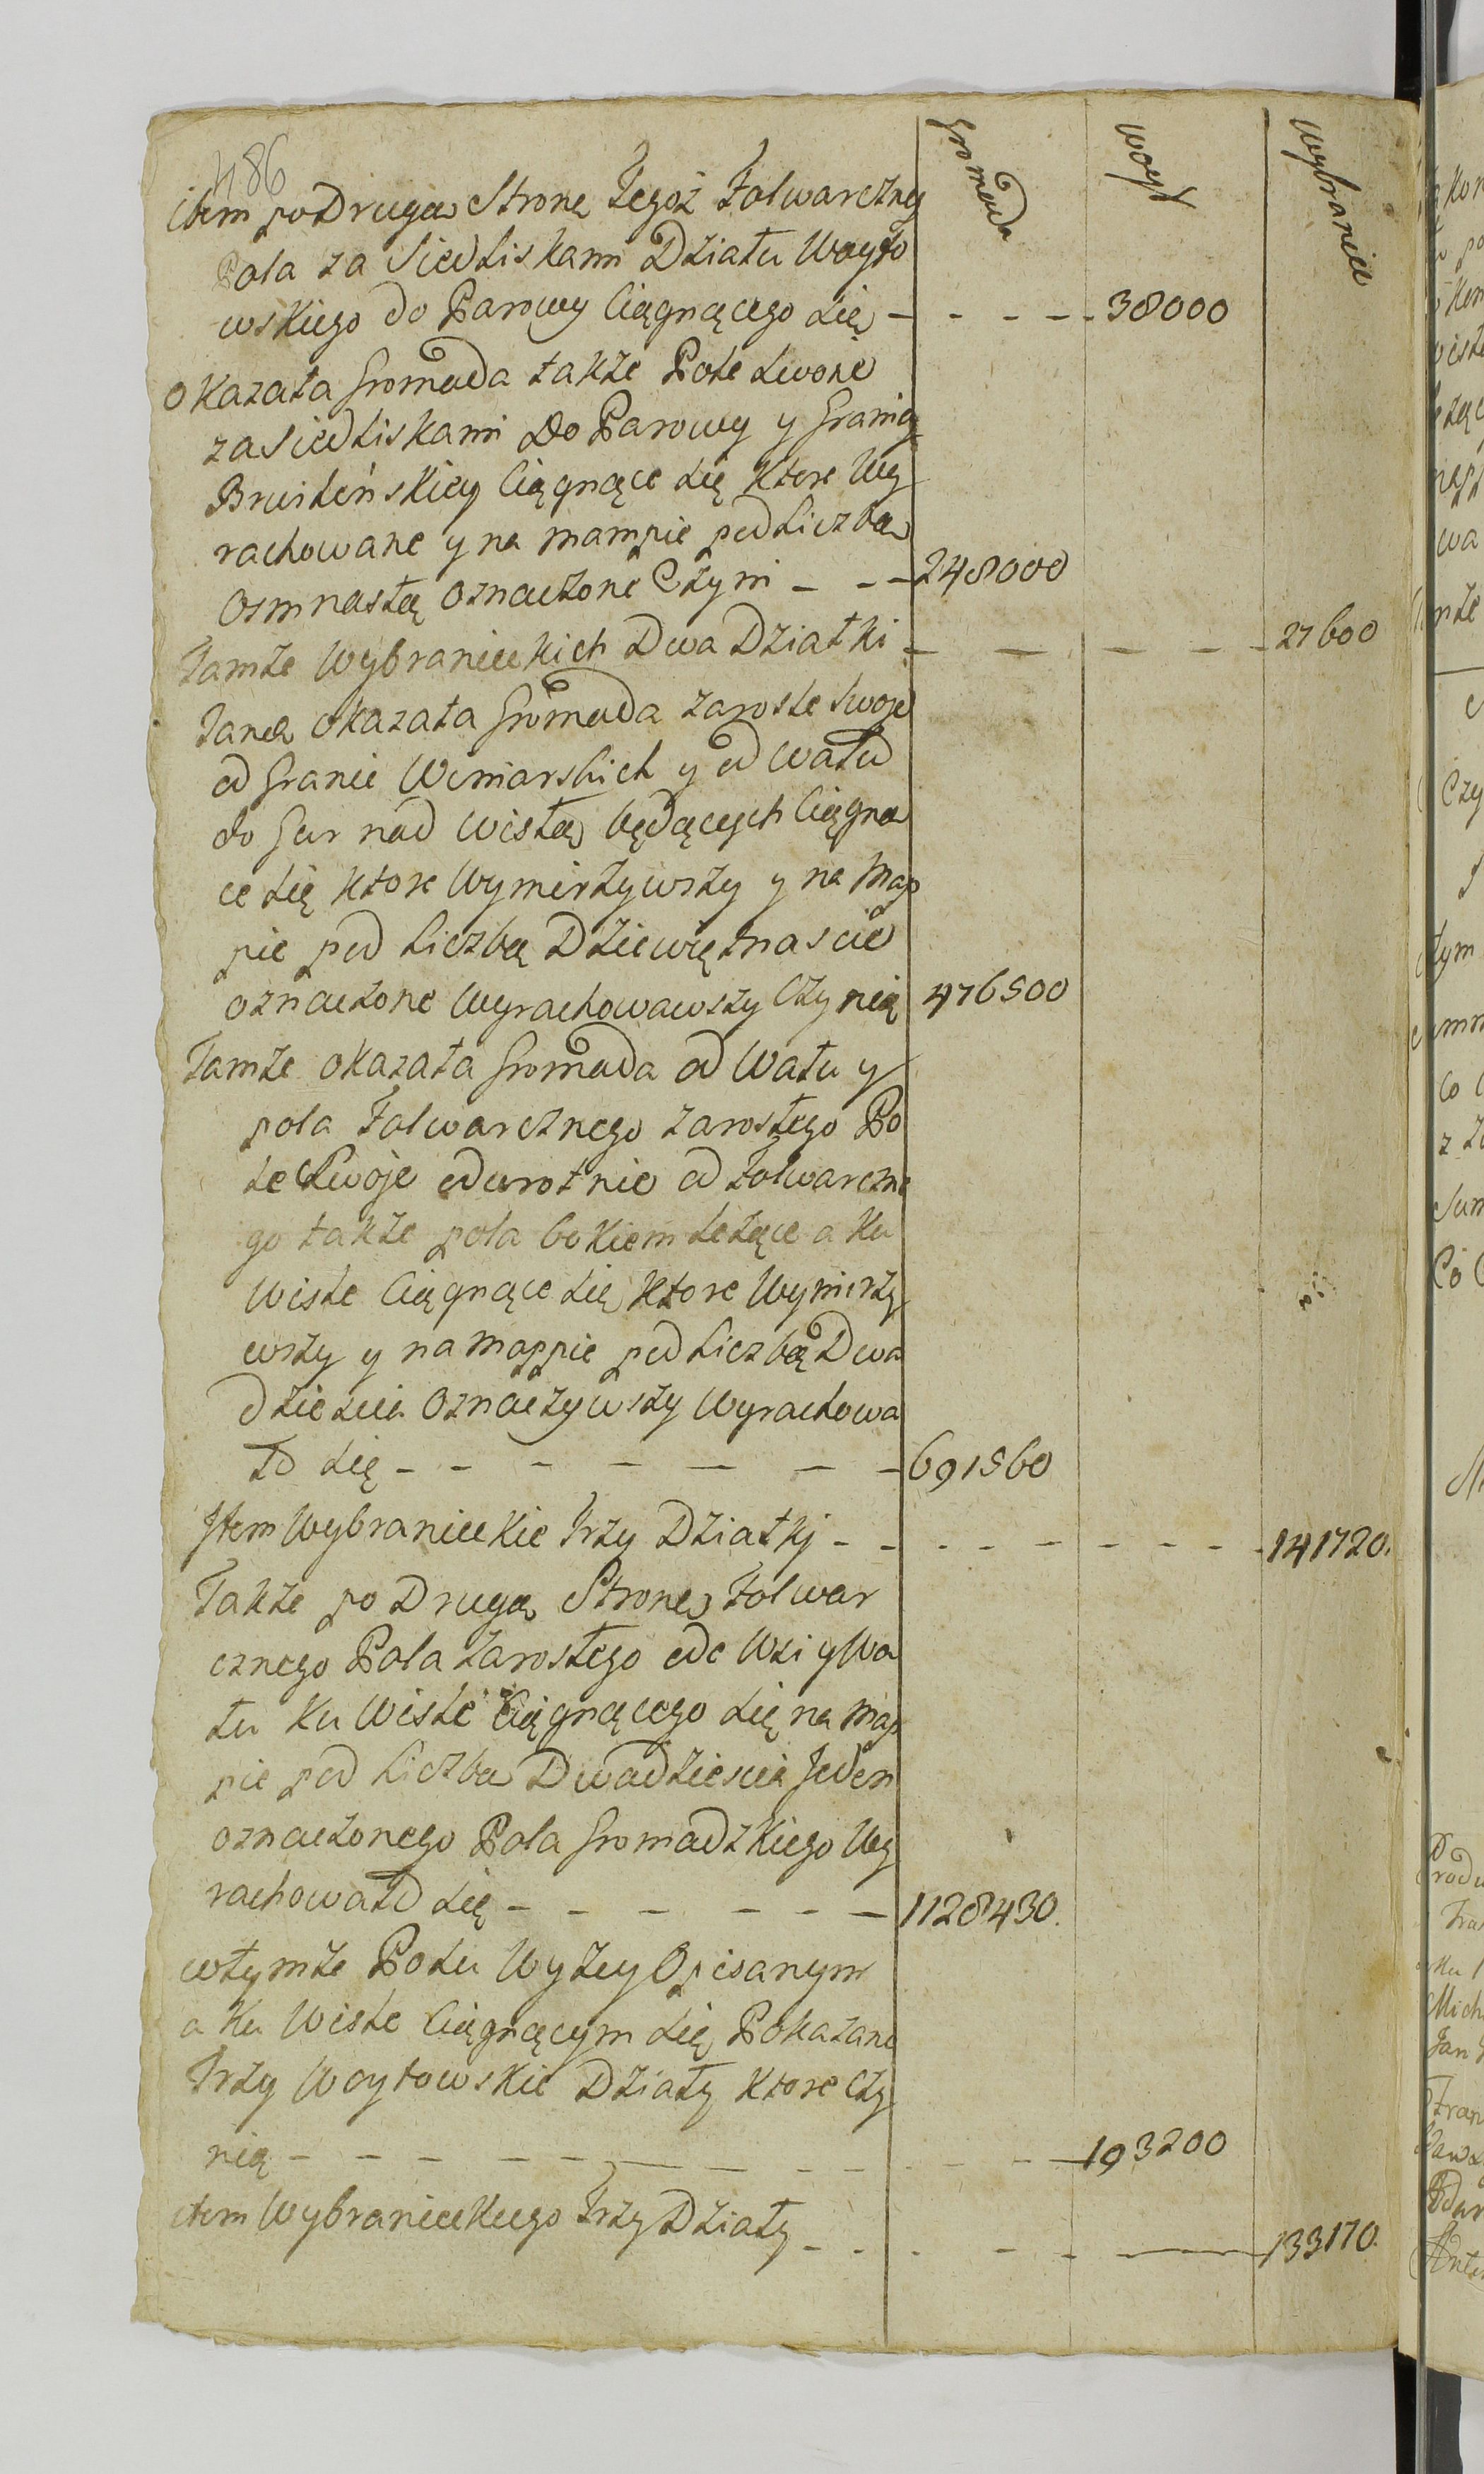 486
Gromada Woyt Wybraniec
item po Drugą Stronę Tegoż Folwarczneg
Pola za Siedliskami Działu Woyto
wskiego do Parowy Ciągnącego się - - - - - 38000
Okazała Gromada także Pole swoie
za Siedliskami do Parowy y Granicy
Ciągnące się ktore Wy
rachowane y na mampie pod Liczbą
Osmnastą oznaczone Czyni - - - 248000
Tamże Wybranieckich Dwa Działki - - - - - 27600
okazała Gromada zarosle swoje
od Granic Winiarskich y od Wału
do Gur nad Wisłą będących Ciągną
ce się ktore Wymierzywszy y na Map
pie pod Liczbą Dziewiętnascie
oznaczone Wyrachowawszy Czynią 476500
Tamże okazała Gromada od Wału y
pola Folwarcznego zarosłego Po
le Swoje odwrotnie od folwarczne
go także pola bokiem leżące a ku
Wisle Ciągnące się ktore Wymierzy
wszy y na mappie pod Liczbą Dwa
dziescia Oznaczywszy Wyrachowa
ło się - - - - - - - 691560
Item Wybranieckie Trzy Działkj - - - - - - - - 141720.
Także po Drugą Stronę folwar
cznego Pola zarosłego ode Wsi y Wa
łu ku Wisle Ciągnącego się na Map
pie pod Liczbą Dwadziescia Jeden
oznaczonego Pola Gromadzkiego Wy
rachowało się - - - - - - - 1128430.
w tymże Polu Wyżey Opisanym
a ku Wisle Ciągnącym się Pokazane
Trzy Woytowskie Działy ktore Czy
nią - - - - - - - - - - - 193200
item Wybranieckiego Trzy Działy - - - - - 133170.